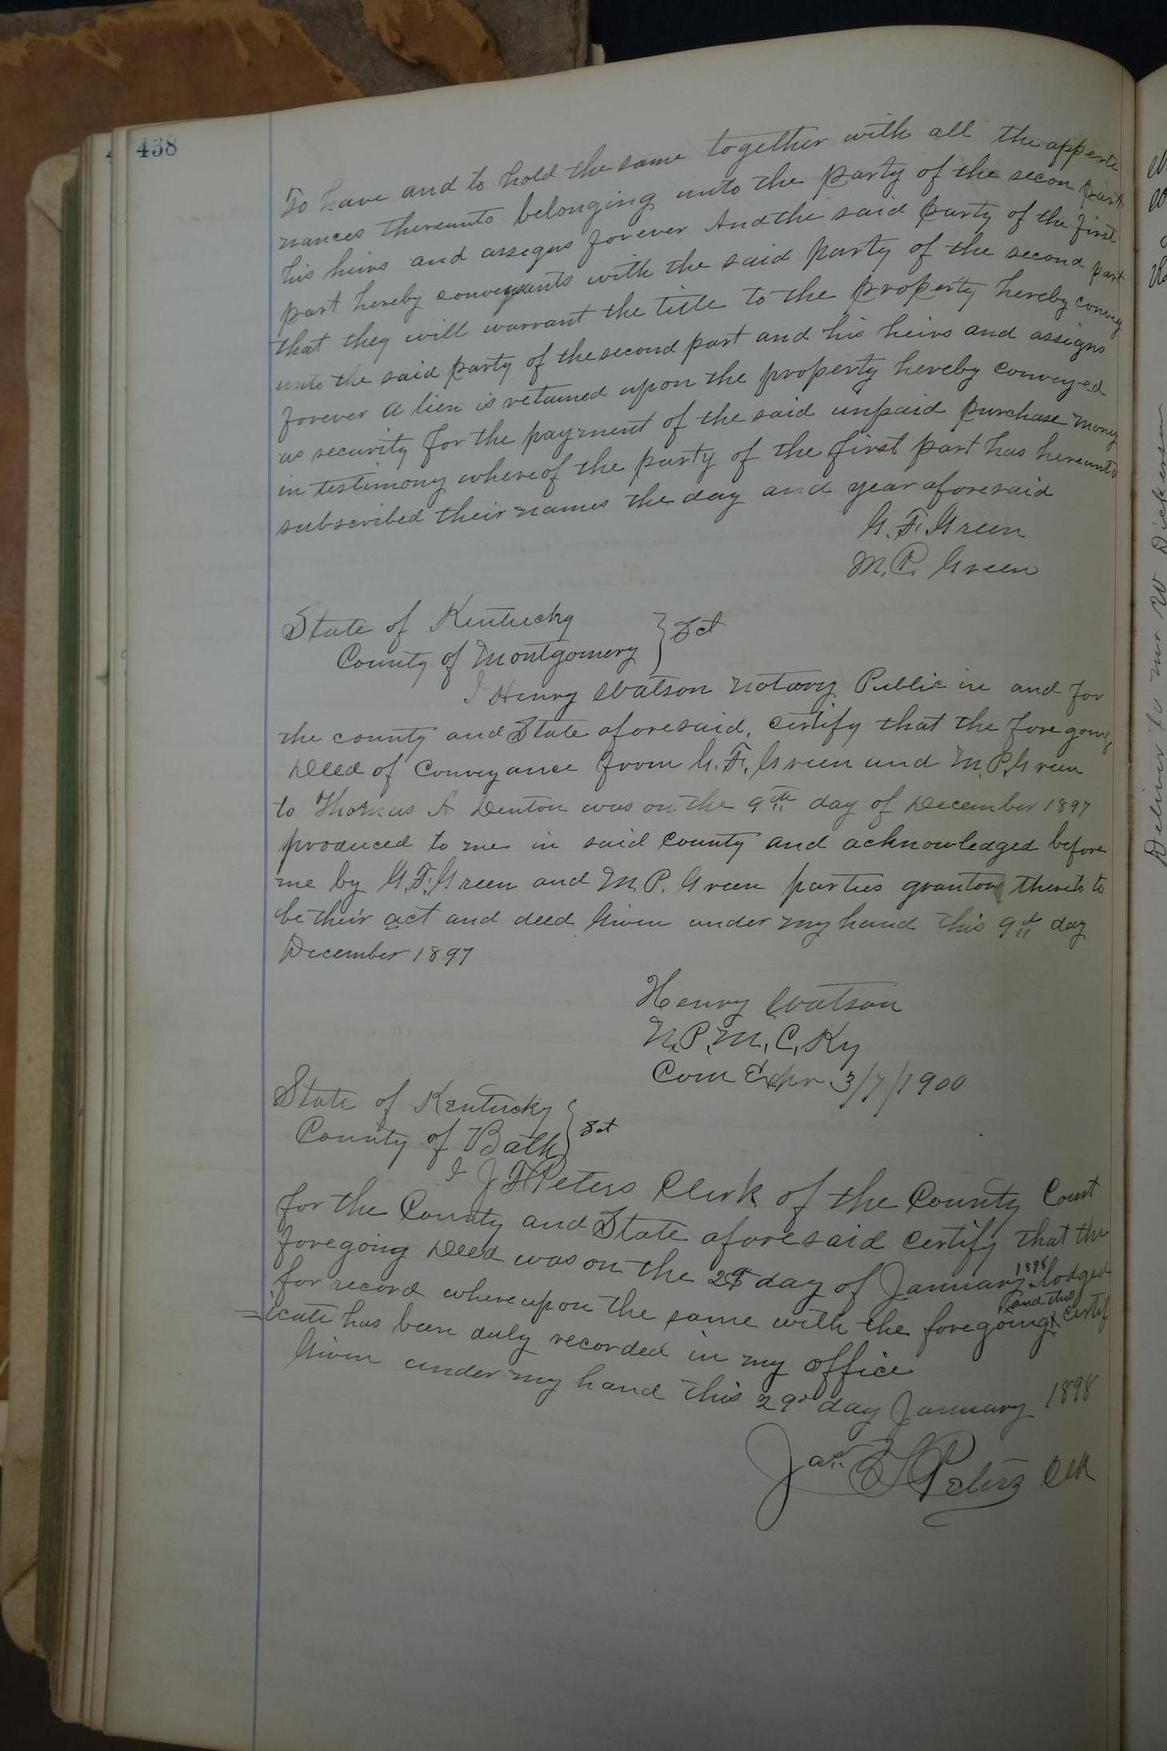 438
To have and to hold the same together with all the apperte
nances thereunto belonging unto the party of the secon part
his heirs and assigns forever And the said party of the first
part hereby convenants with the said party of the second part
that they will warrant the title to the property hereby convey
unto the said party of the second part and his heirs and assigns
forever A lien is retained upon the property hereby conveyed
as security for the payment of the said unpaid purchase money
in testimony whereof the party of the first part has hereunto
subscribed their names the day and year aforesaid
G. F. Green
M. P. Green
State of Kentucky
County of Montgomery } Sct
I Henry Watson Notary Public in and for
the county and State aforesaid, certify that the foregoing
Deed of Conveyance from G. F. Green and M. P. Green
to Thomas A Denton was on the 9th day of December 1897
produced to me in said County and acknowledged before
me by G. F. Green and M. P. Green parties grantors thereto to
be their act and deed Given under my hand this 9th day
December 1897
Henry Watson
N. P. M. C. Ky
Com Expr 3/7/1900
State of Kentucky
County of Bath } Sct
I J F Peters Clerk of the County Court
for the County and State aforesaid certify that the
foregoing Deed was on the 29 day of January 1898 lodged
for record whereupon the same with the foregoing and this certif
=icate has been duly recorded in my office
Given under my hand this 29th day January 1898
Jas F Peters Clk
Deliver to Dickerson